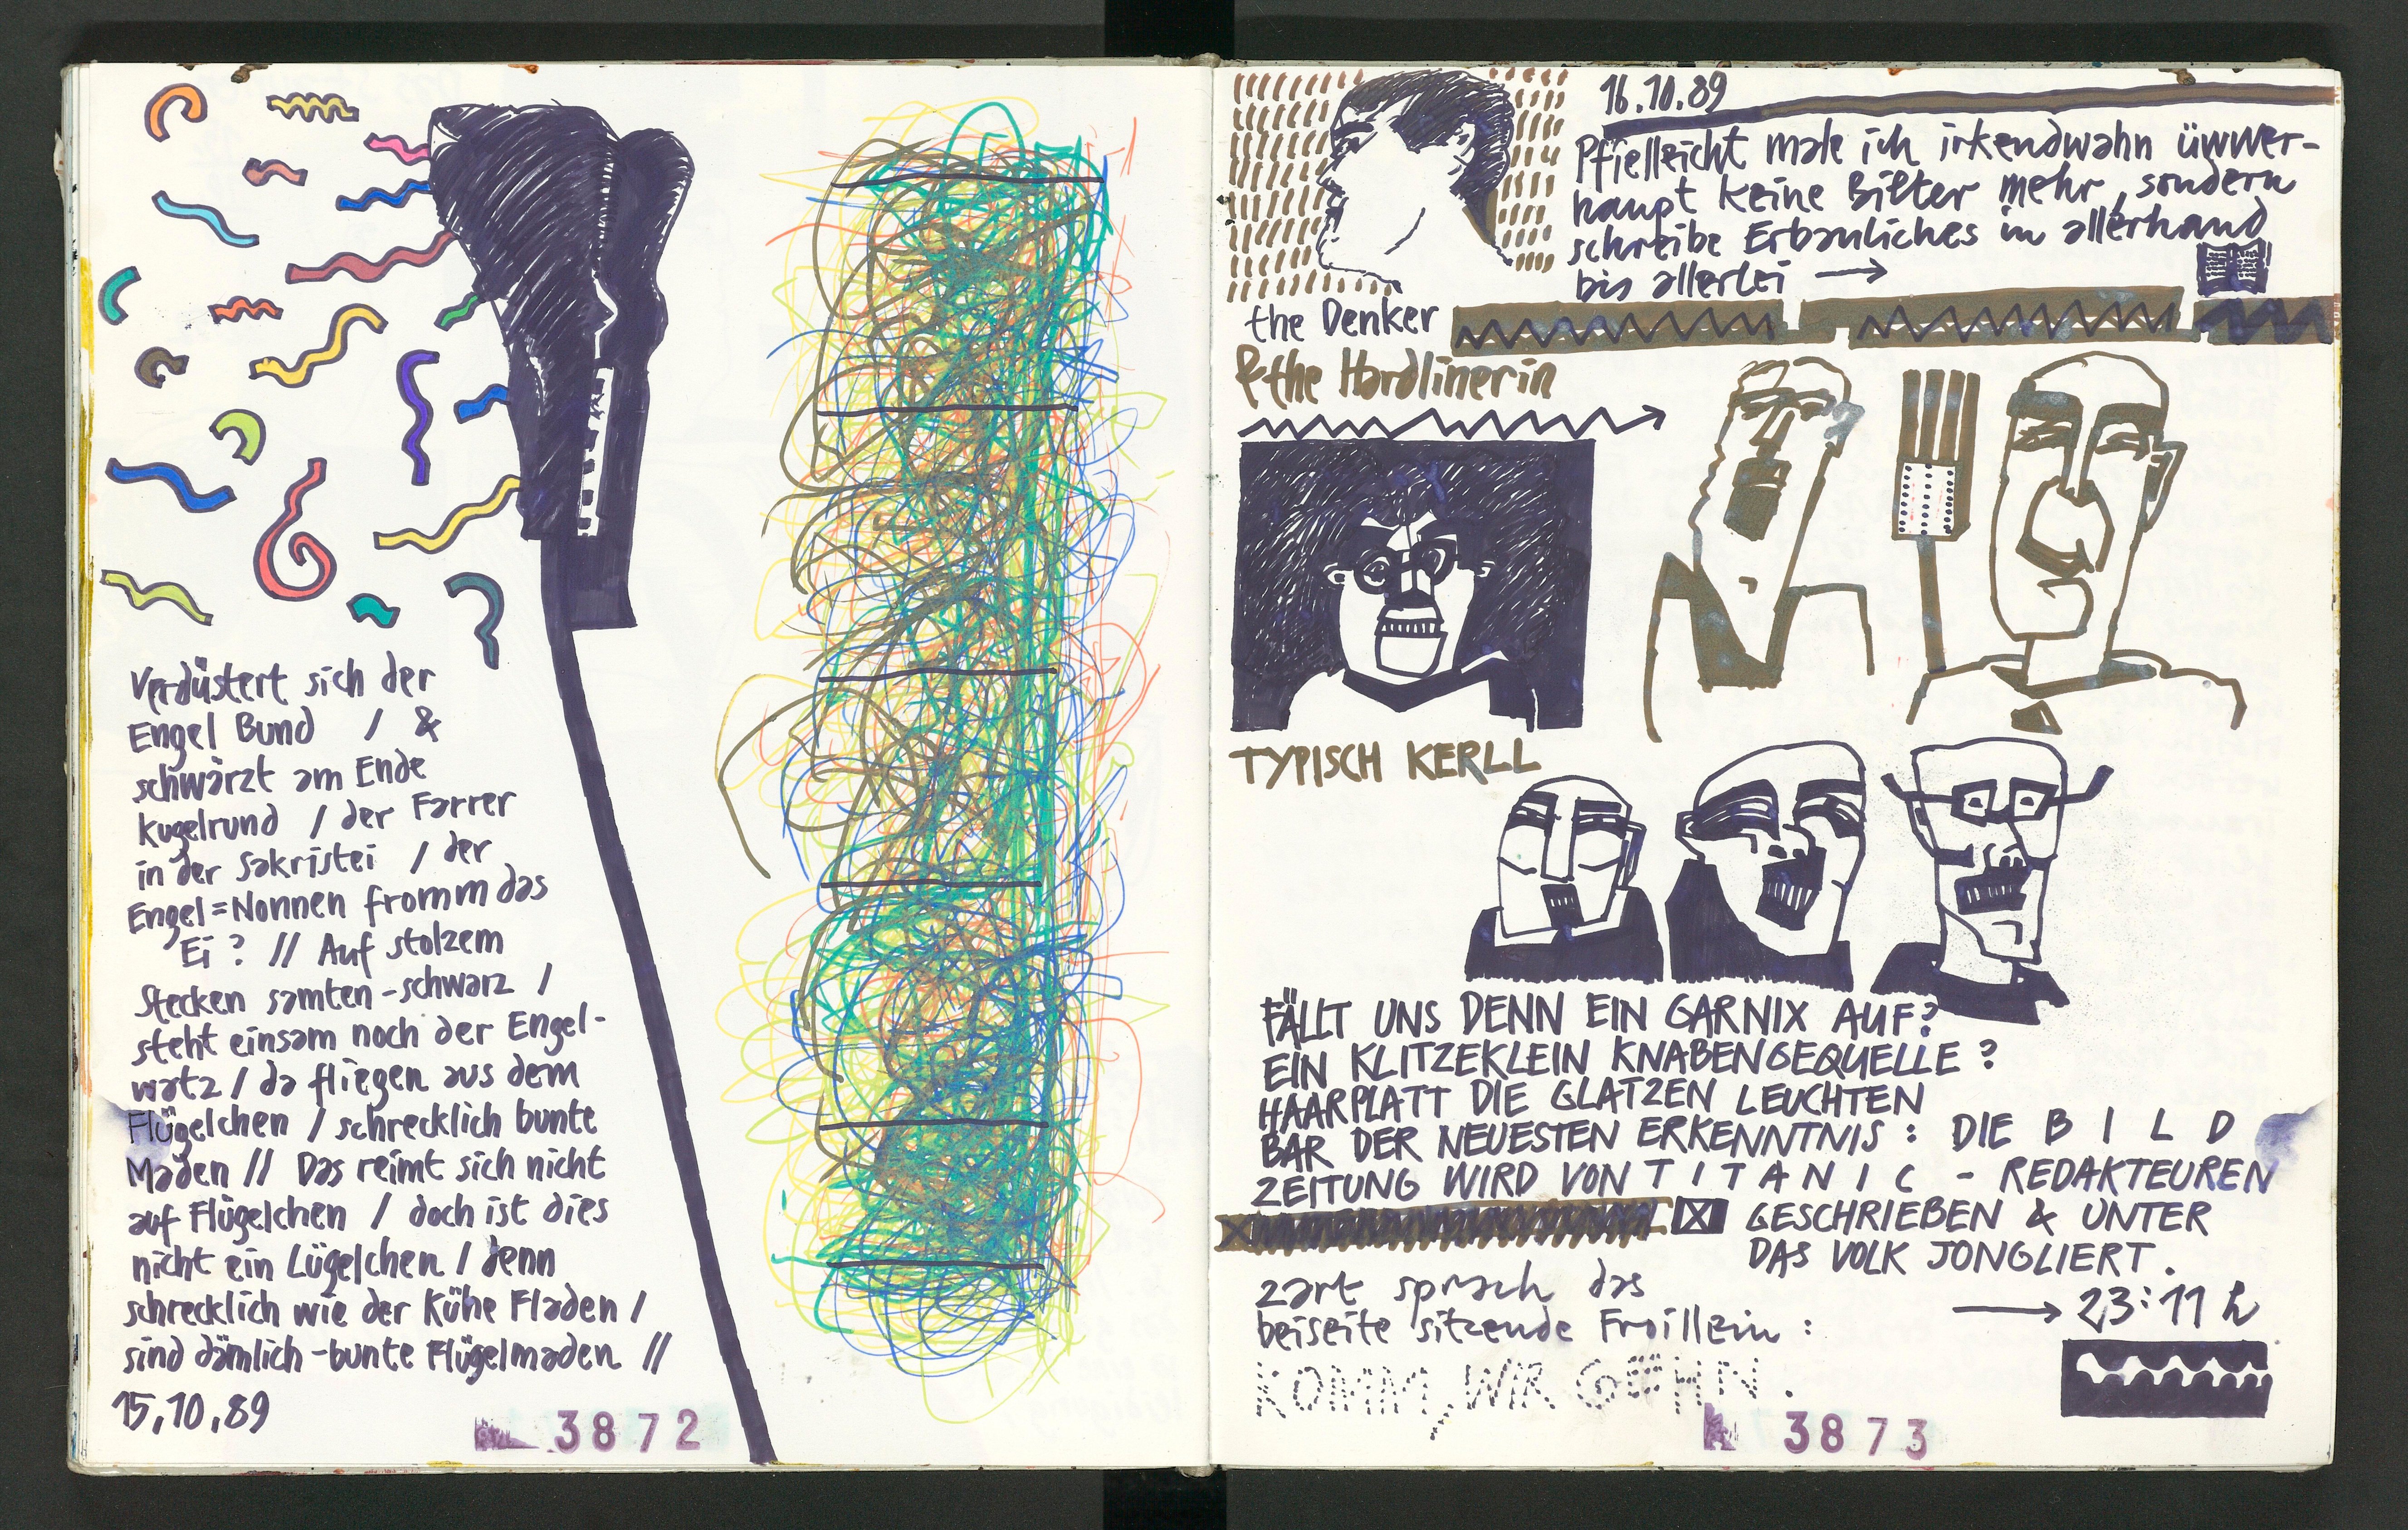 Verdüstert sich der
Engel Bund / &
schwärzt am Ende
kugelrund / der Farrer
in der Sakristei / der
Engel=Nonnen fromm das
Ei ? // Auf stolzem
Stecken samten-schwarz /
steht einsam noch der Engel-
watz / da fliegen aus dem
Flügelchen / schrecklich bunte
Maden // Das reimt sich nicht
auf Flügelchen / doch ist dies
nicht ein Lügelchen / denn
schrecklich wie der Kühe Fladen /
sind dämlich-bunte Flügelmaden //
15,10,89
3872
16.10.89
Pfielleicht male ich irkendwahn üwwer-
haupt keine Bilter mehr, sondern
schreibe Erbauliches in allerhand
bis allerlei →
the Denker
& the Hardlinerin
TYPISCH KERLL
FÄLLT UNS DENN EIN GARNIX AUF?
EIN KLITZEKLEIN KNABENGEQUELLE ?
HAARPLATT DIE GLATZEN LEUCHTEN
BAR DER NEUESTEN ERKENNTNIS : DIE B I L D
ZEITUNG WIRD VON T I T A N I C - REDAKTEUREN
GESCHRIEBEN & UNTER
DAS VOLK JONGLIERT.
zart sprach das
beiseite sitzende Froillein :
→ 23:11 h
KOMM, WIR GEHN.
3873